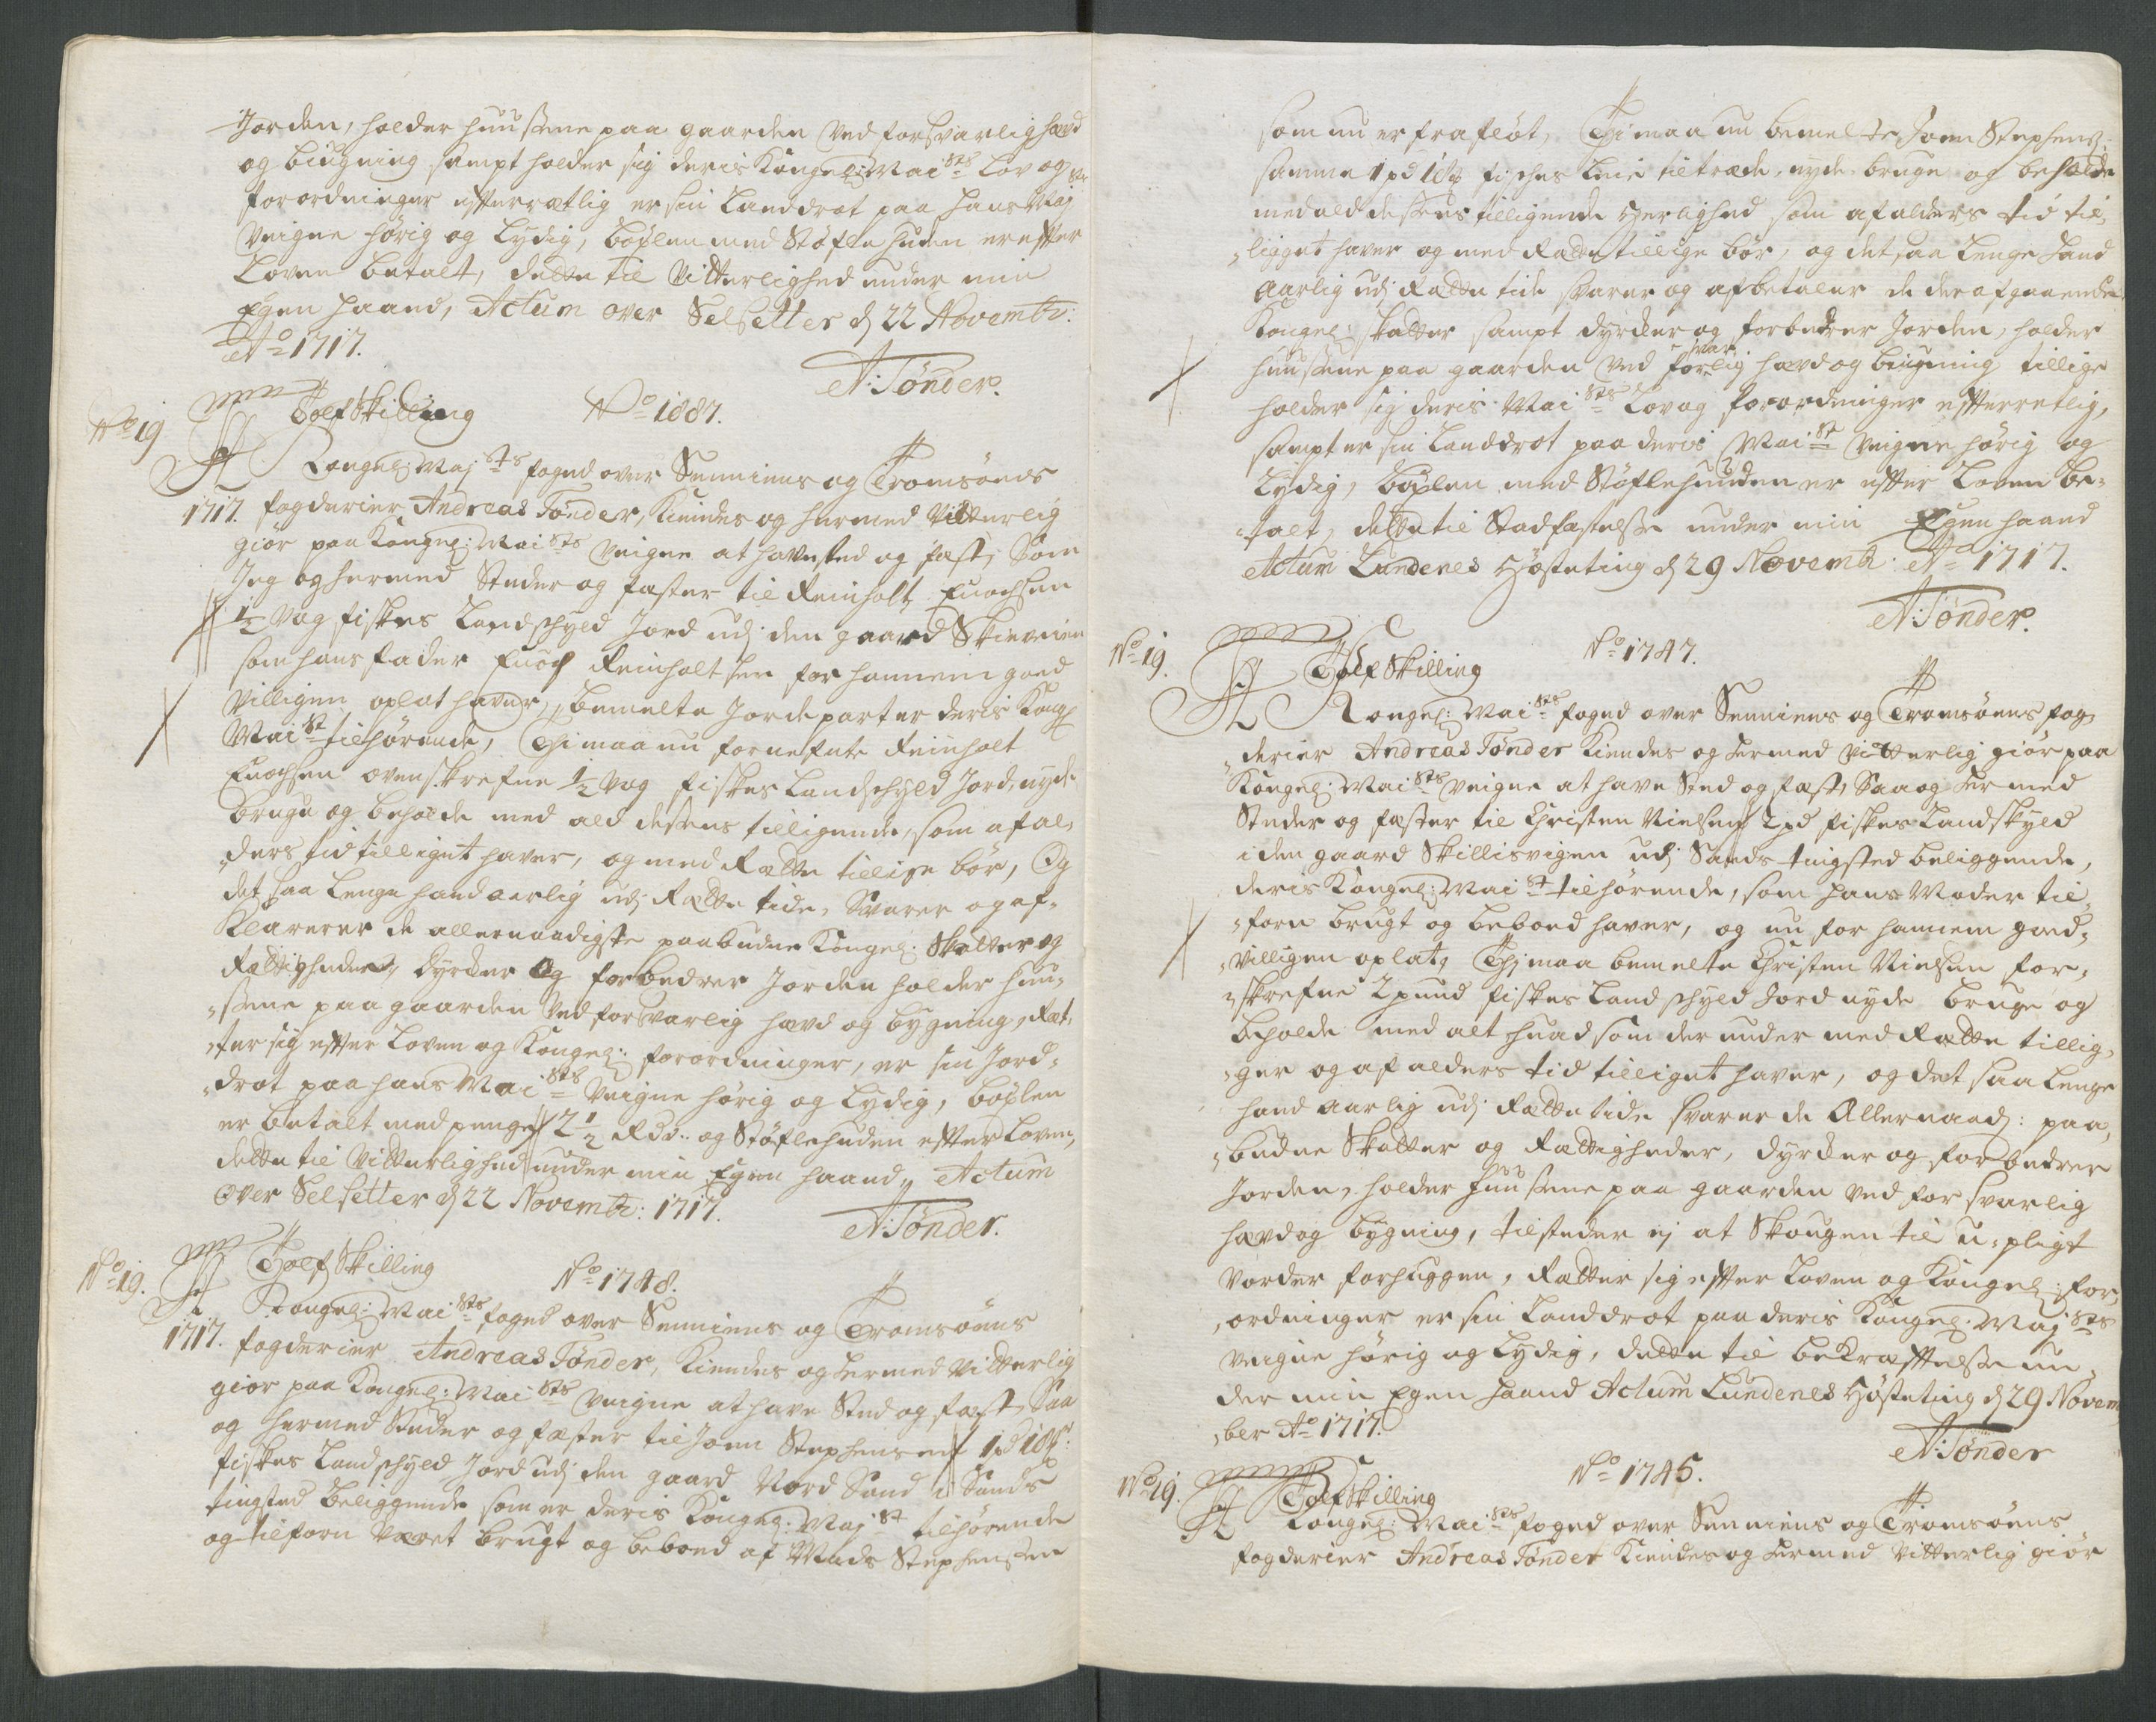 Jorden, holder huussene paa gaarden ved forsvarlig hævd
og bÿugning sampt holder sig deris Kongel: Mai:sts Lov og
forordninger efterrætlig er sin Landdrot paa hans Maj
veigne hörig og Lÿdig, böxlen med Stöfle huden er efter
Loven betalt, dette til Vitterlighed under min
Egen haand, Actum over Selsetter d 22 Novembr:
Ao 1717.
A: Tönder.
No 19
Tolf Skilling No 1887.
Kongel: Maj:sts foged over Senniens og Tromsöens
1717. fogderier Andreas Tönder, Kiendes og hermed Vitterlig
giör paa Kongel: Mai:sts veigne at have sted og fæst, Som
Jeg og hermed Steder og fæster til Reinholt Enochsen
1/2 Vog fiskes Landschÿld Jord udj den gaard
som hans fader Enoch Reinholtsen for hannem goed
villigen oplat haver, bemelte Jordeparter deris Kongl
Mai:st tilhörende, Thi maa nu fornefnte Reinholt
Enochsen ovenskrefne 1/2 Vog fiskes Landschÿld Jord, nÿde
bruge og beholde med ald desens tilligende, som af al,
ders tid tilligget haver, og med Rætte tillige bör, Og
det saa lenge hand aarlig udj Rætte tide, Svarer og af-
Klarerer de allernaadigste paabudne Kongel: Skatter og
Rættigheder, dÿrker Og forbedrer Jorden holder huu-
ssene paa gaarden ved forsvarlig hævd og bÿgning, Ret,
ter sig efter Loven og Kongel: forordninger, er sin Jord-
drot paa hans Mai:sts Veigne hörig og Lÿdig, böxlen
er betalt med penge 2 1/2 Rdr: og Stöflehuden efter Loven,
dette til Vitterlighed under min Egen haand, Actum
Over Selsetter d 22 Novembr: 1717.
A: Tönder.
No 19.
Tolf Skilling No 1748.
Kongel: Mai:sts foged over Senniens og Tromsöens
1717. fogderier Andreas Tönder, Kiendes og hermed Vitterlig
giör paa Kongel: Mai:sts veigne at have Sted og fæst, Saa
og hermed Steder og fæster til Joen Stephensen 1 pd 18
fiskes Landschÿld Jord udj den gaard Nord Sand i Sands
tingsted beliggende som er deris Kongel: Maj:st tilhörende
og tilforn været brugt og beboed af Mads Stephensen
som nu er frafløt, Thi maa nu bemelte Joen Stephens:
samme 1 pd 18 fisches Leie tiltræde, nÿde bruge og beholde
med ald dessens tilligende Herlighed som af alders tid til,
ligget haver og med Rætte tillige bör, og det saa lenge hand
aarlig udj Rætte tide svarer og afbetaler de der afgaaende
Kongel: skatter sampt dÿrker og forbedrer Jorden, holder
huussene paa gaarden ved forsvarlig hævd og bÿugning tillige
holder sig deris Mai:sts Lov og forordninger efterretlig,
sampt er sin Landdrot paa deris Mai:st veigne hörig og
Lÿdig, böxlen med Stöflehuden er efter Loven be-
talt, dette til Stadfæstelsse under min Egen haand
Actum Lundenes Hösteting d 29 Novembr: Ao 1717.
A: Tönder.
No 19.
Tolf Skilling No 1747.
Kongel: Mai:sts foged over Senniens og Tromsöens fog,
derier Andreas Tönder Kiendes og hermed vitterlig giör paa
Kongel: Mai:sts veigne at have Sted og fæst, Saa og hermed
Steder og fæster til Christen Nielsen 2 pd fiskes Landskÿld
i den gaard Skillisvigen udj Sands tingsted beliggende,
deris Kongel: Mai:st tilhörende, som hans Moder til-
forn brugt og beboed haver, og nu for hannem goed-
villigen oplat, Thi maa bemelte Christen Nielsen for-
skrefne 2 pund fiskes Landschÿld Jord nÿde bruge og
beholde med alt hvad som der under med Rætte tillig,
ger og af alders tid tilliget haver, og det saa lenge
hand aarlig udj Rætte tide svarer de Allernaad: paa,
budne Skatter og Rættigheder, dÿrker og forbedrer
Jorden, holder huussene paa gaarden ved forsvarlig
hævd og bÿgning, tilsteder ej at Skougen til u-pligt
vorder forhuggen, Rætter sig efter Loven og Kongel: for,
ordninger er sin Landdrot paa deris Kongel: Maj:sts
veigne hörig og Lÿdig, dette til bekræftelsse un,
der min Egen haand Actum Lundenes Hösteting d 29 Novem
ber Ao 1717.
A: Tönder
No 19.
Tolf Skilling No 1745.
Kongel: Mai:sts foged over Senniens og Tromsöens
fogderier Andreas Tönder Kiendes og hermed vitterlig giör